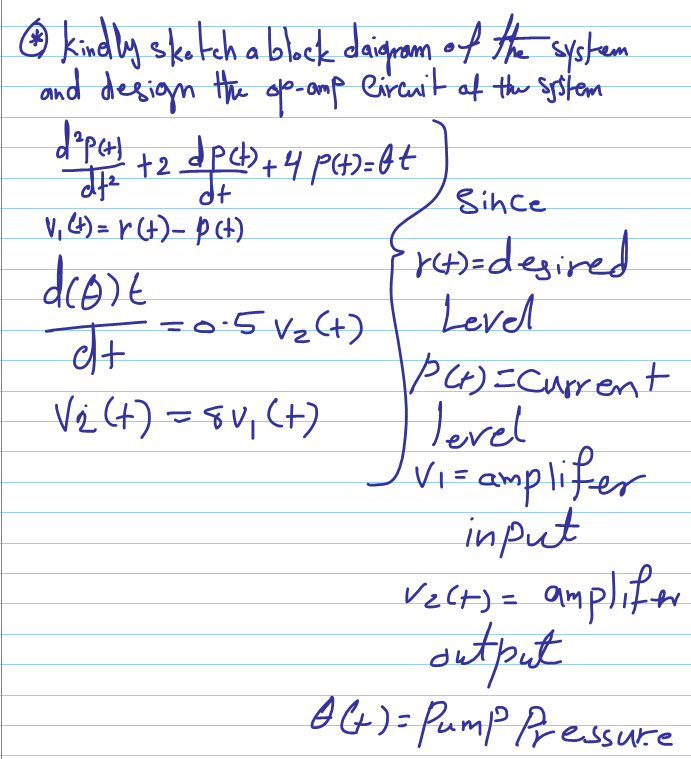 * kindly sketch a block daigram of the system
and design the op-amp Circuit of the system
d²p(t)/dt² + 2 dp(t)/dt + 4 p(t) = θt
v₁(t) = r(t) - p(t)
d(θ)t/dt = 0.5 v₂(t)
V₂(t) = 8v₁(t)
Since
r(t) = desired
Level
p(t) = Current
level
V₁ = amplifer
input
V₂(t) = amplifer
output
θ(t) = Pump Pressure